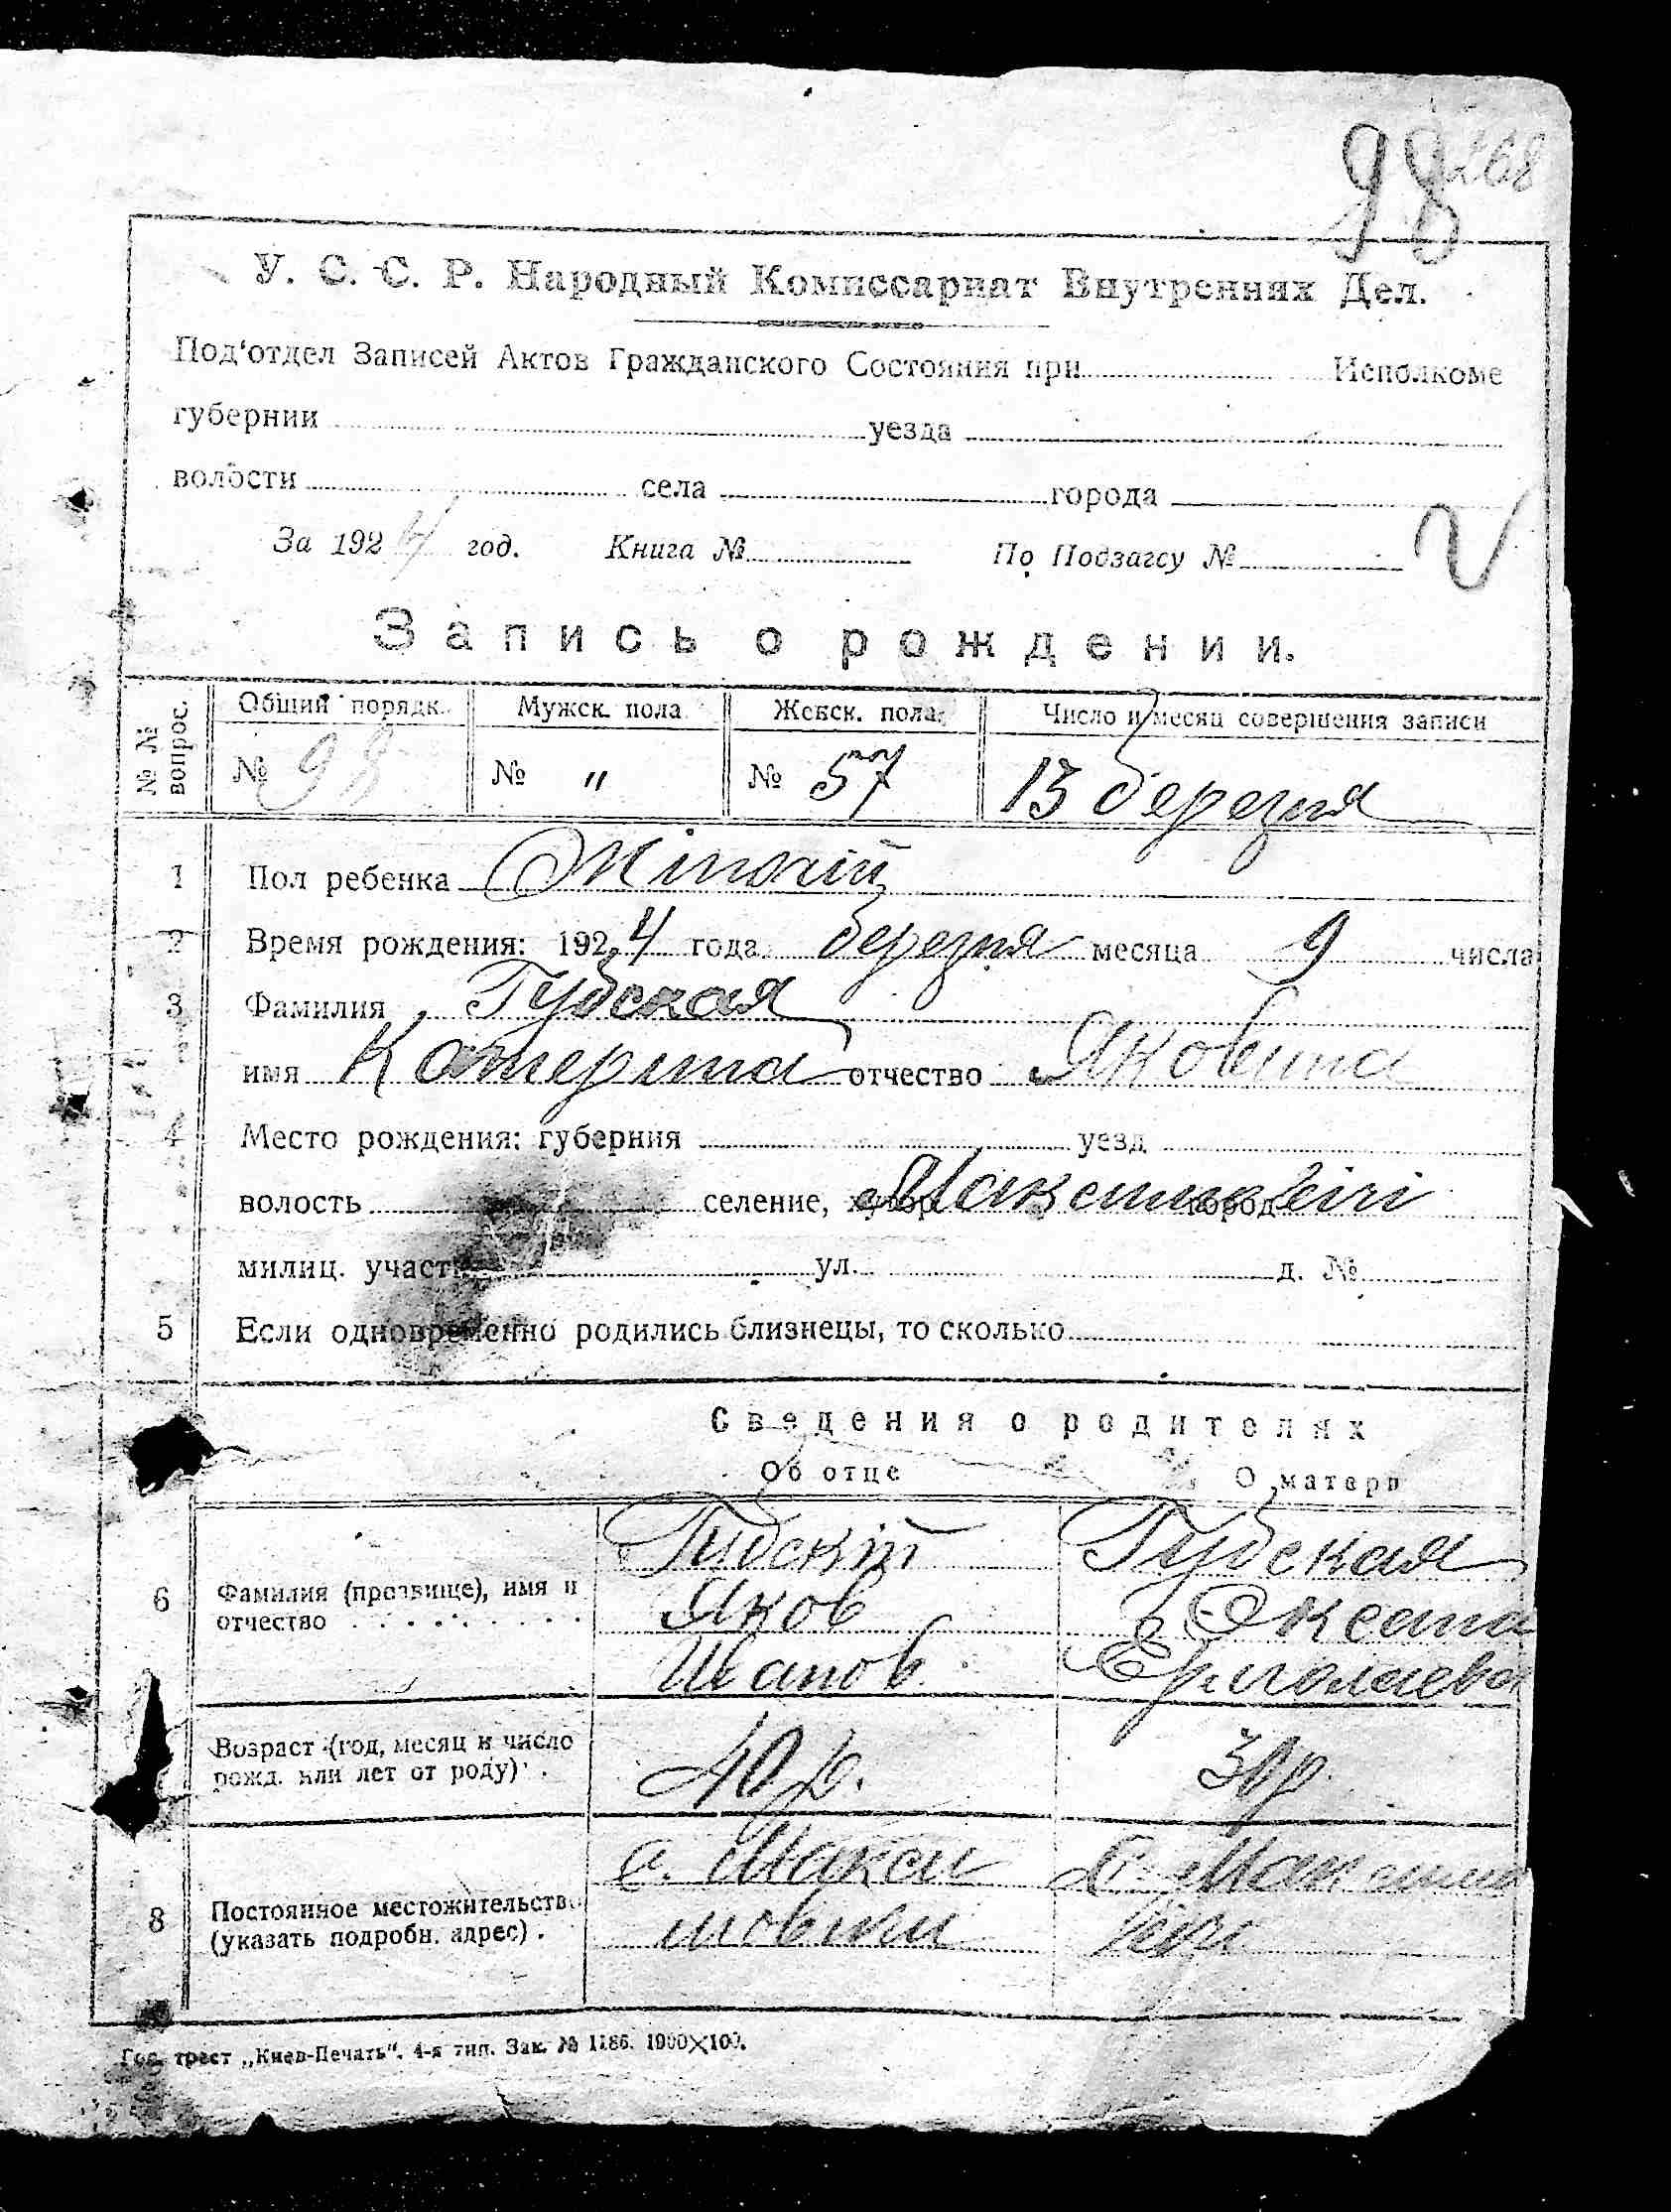 98 268
У. С. С. Р. Народный Комиссариат Внутренних Дел.
Под'отдел Записей Актов Гражданского Состояния при Исполкоме
губернии уезда
волости села города
За 1924 год. Книга № По Подзагсу №
Запись о рождении.
№ № вопрос. Общий порядк. Мужск. пола Женск. пола Число и месяц совершения записи
№ 98 № " № 57 13 березня
1 Пол ребенка Жіночій
2 Время рождения: 1924 года березня месяца 9 числа
3 Фамилия Губская
имя Катерина отчество Яковина
4 Место рождения: губерния уезд
волость селение, хутор город
милиц. участ ул. д. №
5 Если одновременно родились близнецы, то сколько
Сведения о родителях
Об отце О матери
Губскій Губская
6 Фамилия (прозвище), имя и Яков Оксана
отчество Иванов Ермолаева
Возраст (год, месяц и число
рожд. или лет от роду) 40 р. 30 р.
с. Макси
8 Постоянное местожительство
(указать подробн. адрес) мовки
Гос. трест „Киев-Печать". 4-я тип. Зак. № 1186. 1000×100.